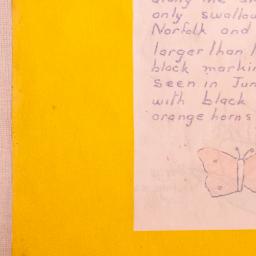 along the
only swallow
Norfolk and
larger than
black markin
seen in Jun
with black
orange horns